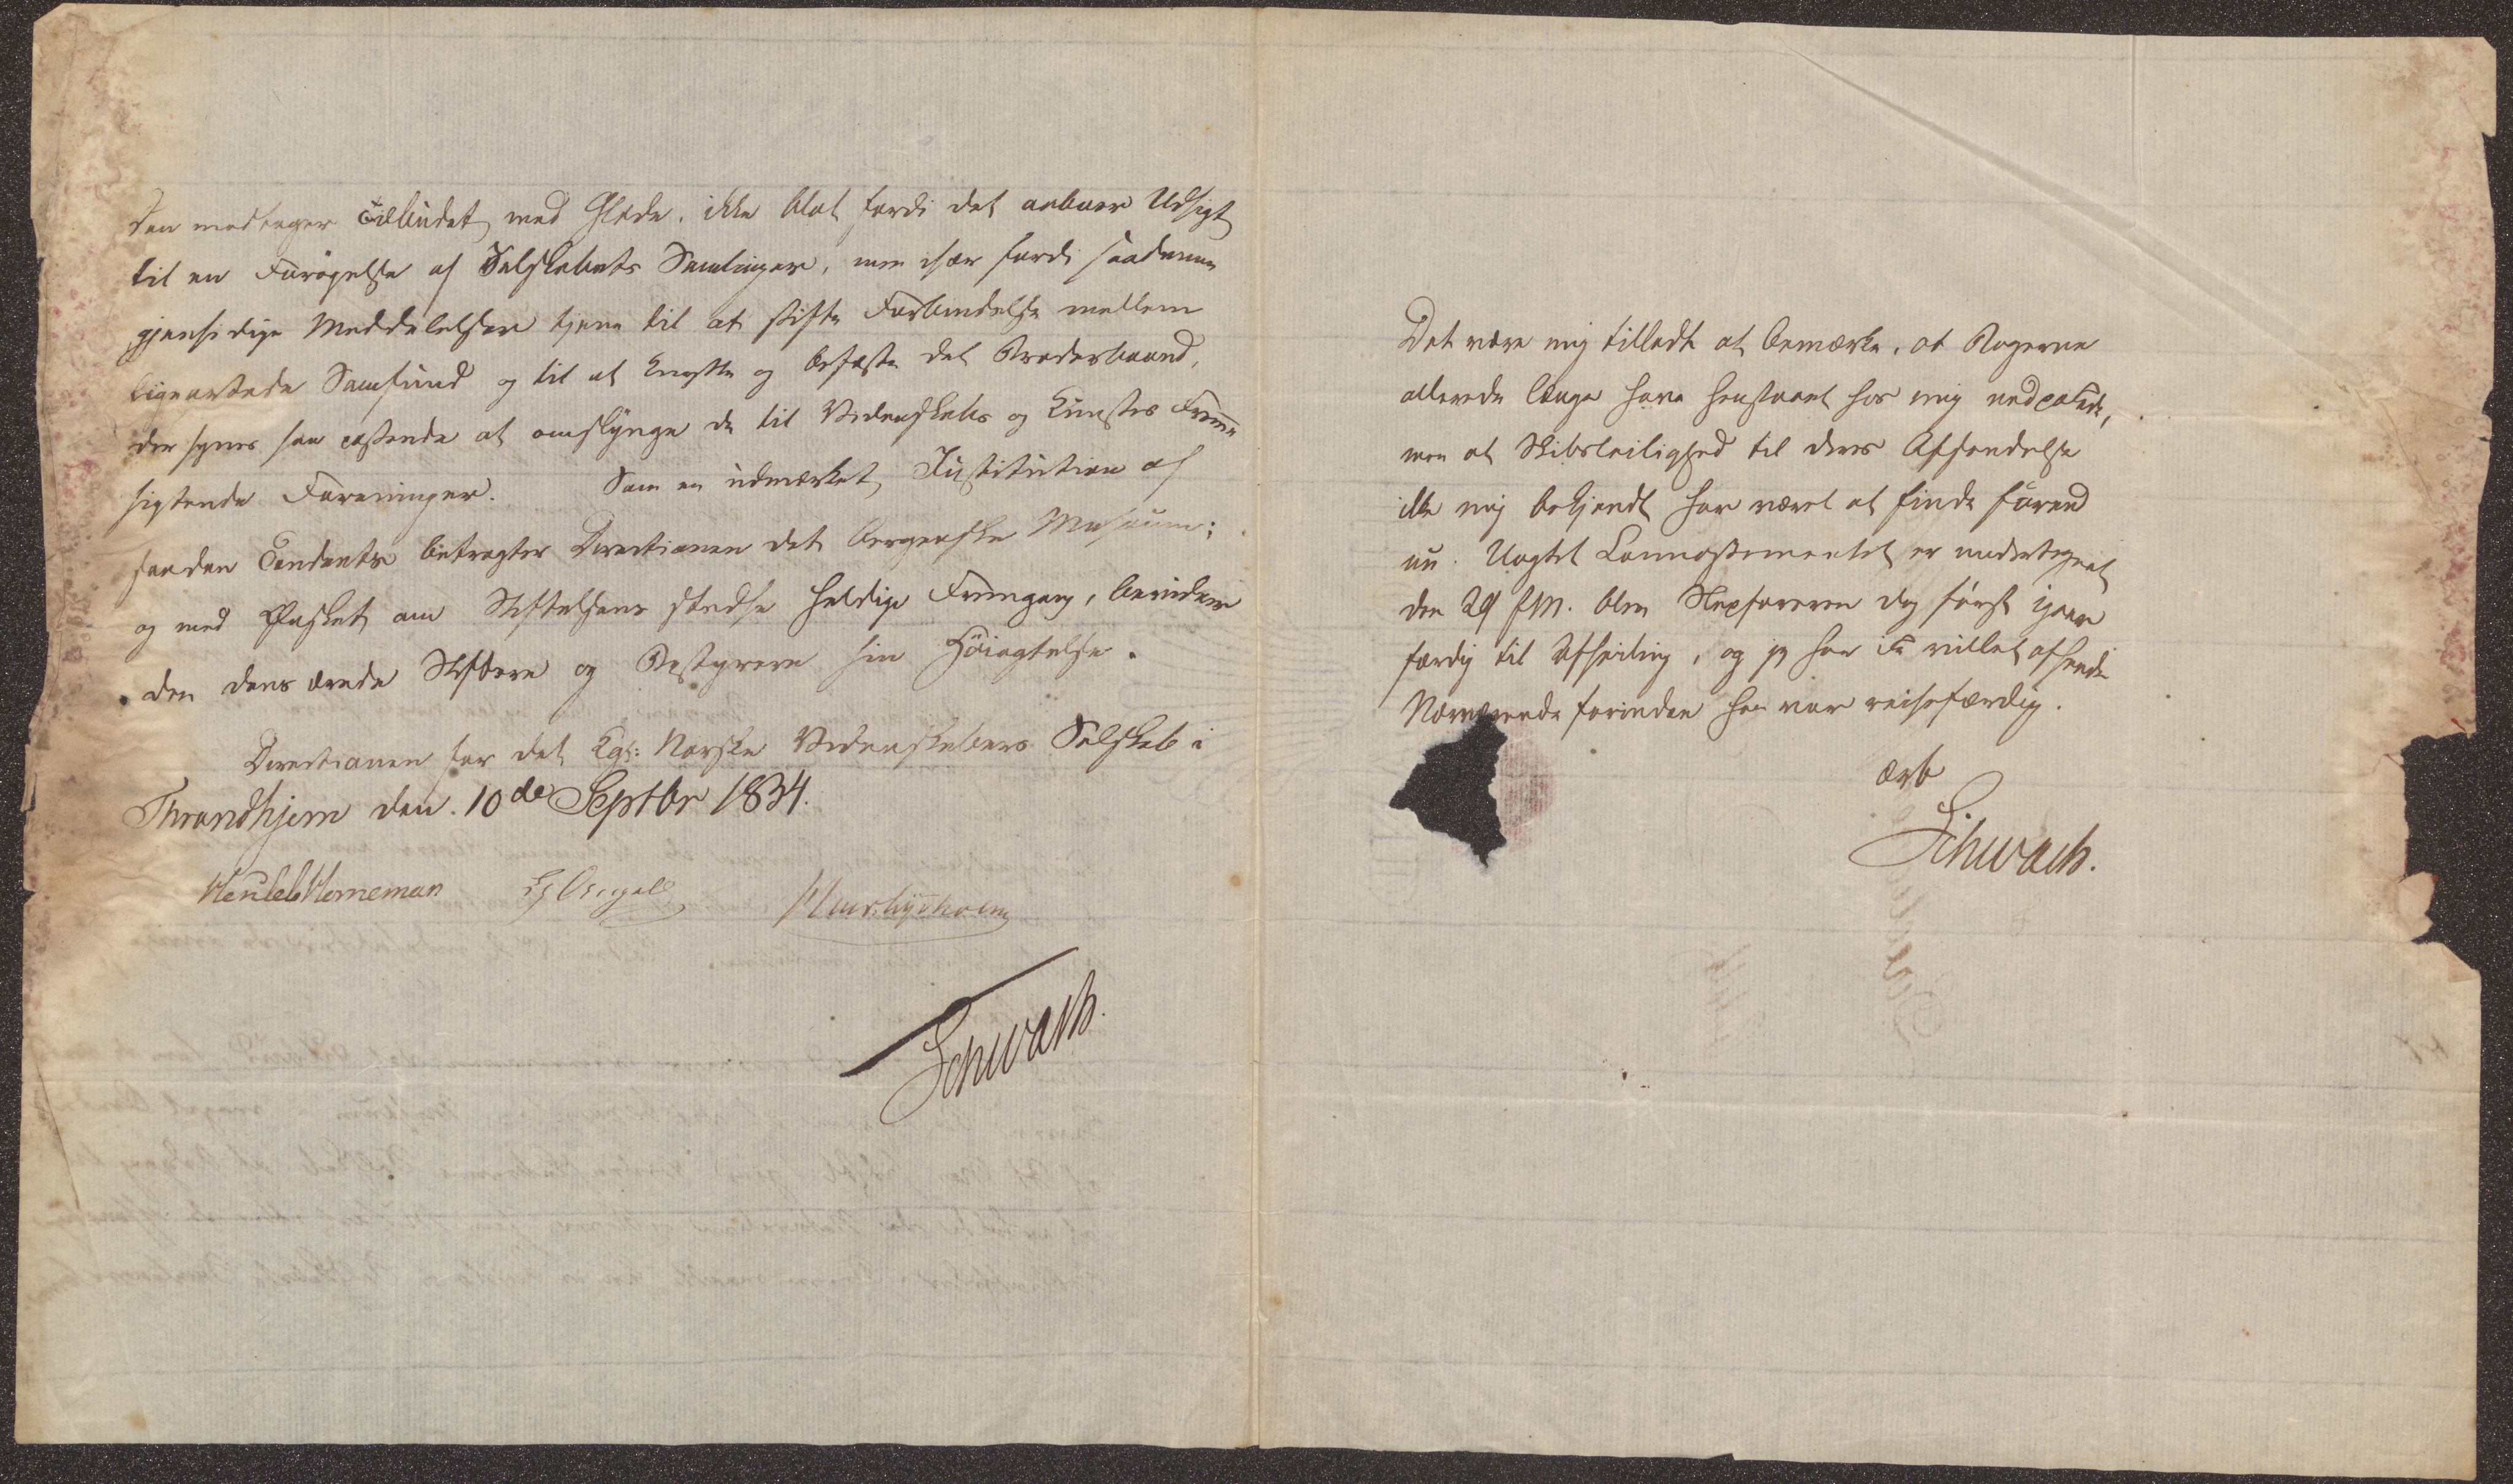 Den modtager Tilbudet med Glæde, ikke blot fordi det aabner Udsigt
til en Forøgelse af Selskabets Samlinger, men især fordi saadanne
gjensidige Meddelelser tjene til at stifte Forbindelse mellem
ligeartede Samfund og til at knytte og befæste det Broderbaand,
der synes saa passende at omslynge de til Videnskabs og Kunstes Fremme
sigtende Foreninger. Som en udmærket Institution af
saadan Tendents betragter Directionen det bergenske Museum;
og med Ønsket om Stiftelsens stedse heldige Fremgang, bevidner
den dens ærede Stiftere og Bestyrere sin Høiagtelse.
Directionen for det Kgl: Norske Videnskabers Selskab i
Throndhjem den 10de Septbr 1834.
Horneman
Schwach.
Det være mig tilladt at bemærke, at Bøgerne
allerede længe have henstaaet hos mig nedpakkede,
men at Skibsleilighed til deres Afsendelse
ikke mig bekjendt har været at finde førend
nu. Uagtet Connossementet er undertegnet
den 29 f.M. blev Skipperen dog først igaar
færdig til Afseiling, og jeg har ei villet afsende
Nærværende forinden han var reisefærdig.
ærb
Schwach.